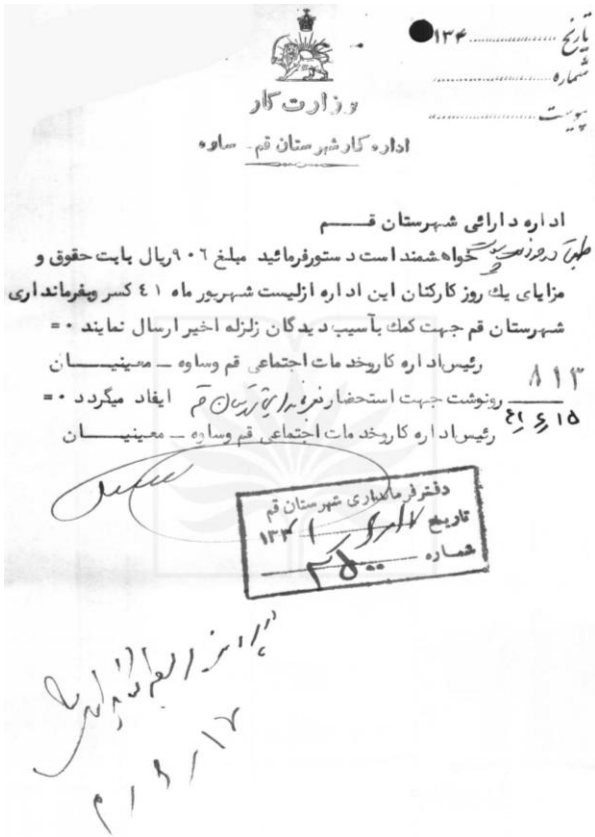 تاریخ .................. ۱۳۴
شماره ..................
پیوست ..................
وزارت کار
اداره کار شهرستان قم - ساوه
اداره دارائی شهرستان قم
خواهشمند است دستور فرمائید مبلغ ۹۰۶ ریال بابت حقوق و
مزایای یک روز کارکنان این اداره از لیست شهریور ماه ۴۱ کسر و بفرمانداری
شهرستان قم جهت کمک بآسیب دیدگان زلزله اخیر ارسال نمایند ۰=
رئیس اداره کار و خدمات اجتماعی قم و ساوه - معینیان
۸۱۳
۴۱/۶/۱۵
رونوشت جهت استحضار فرمانداری شهرستان قم ایفاد میگردد ۰=
رئیس اداره کار و خدمات اجتماعی قم و ساوه - معینیان
دفتر فرمانداری شهرستان قم
تاریخ ۱۳۴۱
شماره